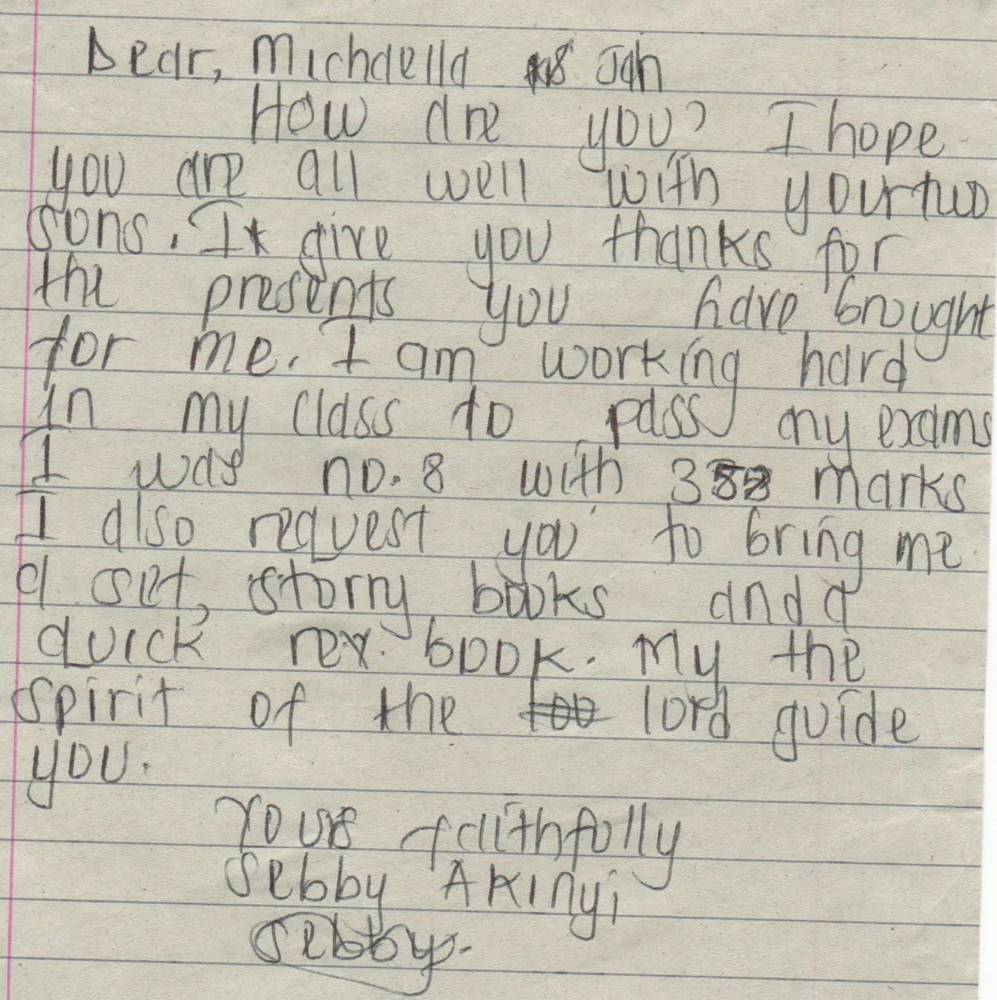 Dear, Michaella & Jan
How are you? I hope
you are all well with your two
sons. I give you thanks for
the presents you have brought
for me. I am working hard
in my class to pass my exams
I was no. 8 with 358 marks
I also request you to bring me
a set, storry books and a
quick rex. book. My the
spirit of the lord guide
you.
Yours faithfully
Sebby Akinyi
Sebby.